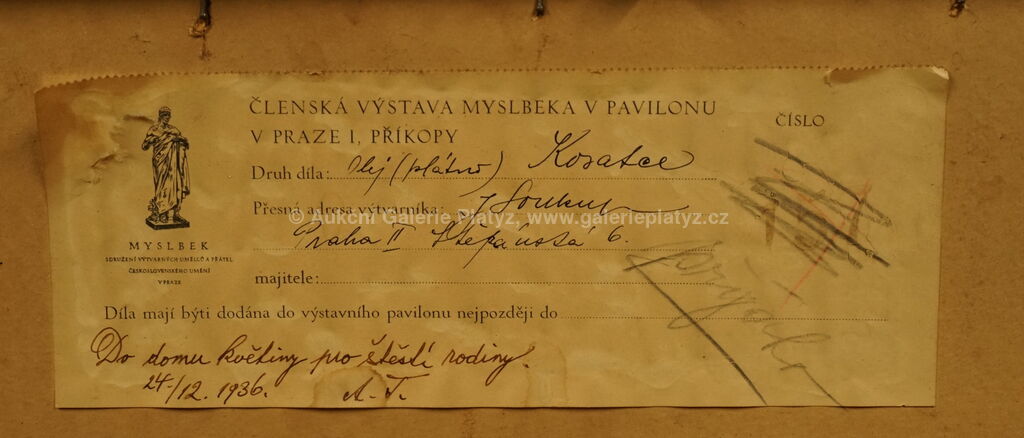 ČLENSKÁ VÝSTAVA MYSLBEKA V PAVILONU
V PRAZE I, PŘÍKOPY
ČÍSLO
Druh díla: Olej (plátno) Kosatce
Přesná adresa výtvarníka: J Soukup
© Aukční Galerie Platýz, www.galerieplatyz.cz
Praha II Štěpánská 6.
majitele:
MYSLBEK
SDRUŽENÍ VÝTVARNÝCH UMĚLCŮ A PŘÁTEL
ČESKOSLOVENSKÉHO UMĚNÍ
V PRAZE
Díla mají býti dodána do výstavního pavilonu nejpozději do
Do domu květiny pro štěstí rodiny.
24/12. 1936. A. T.